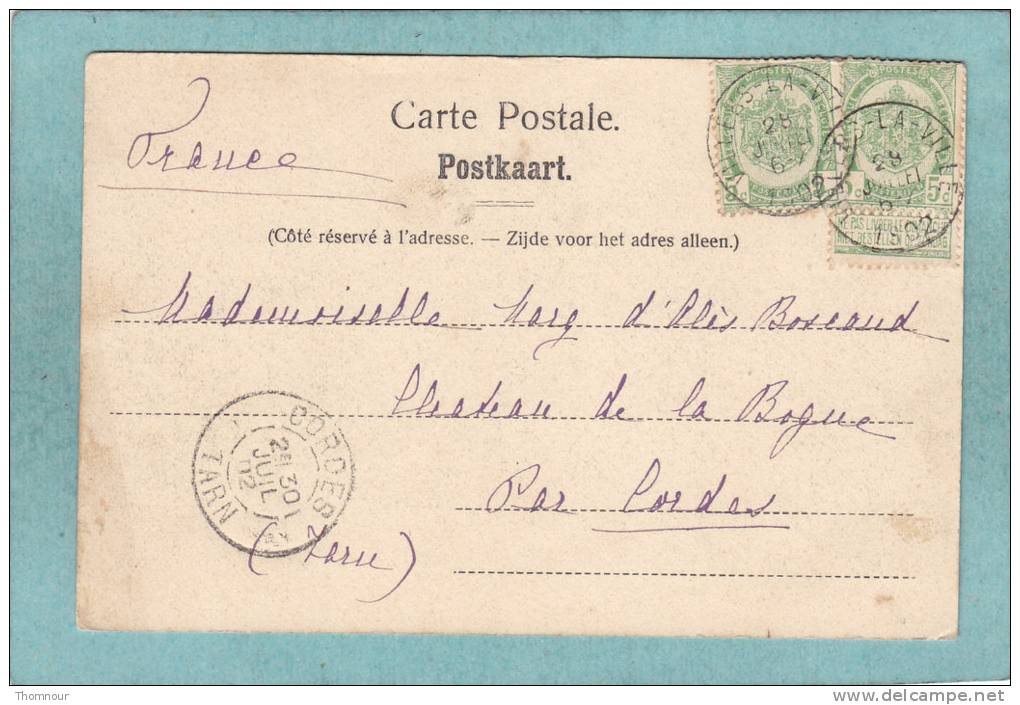 Carte Postale.
Postkaart.
France
(Côté réservé à l'adresse. — Zijde voor het adres alleen.)
LA-VI
28
JUIL
6-
1902
LA-VILLE
28
JUIL
1902
POSTES
POSTES
5c 5c
Mademoiselle Marg d'Alès Boscaud
Chateau de la Bogue
Par Cordes
(Tarn)
CORDES
2E 30
JUIL
02
TARN
Thomnour
www.delcampe.net